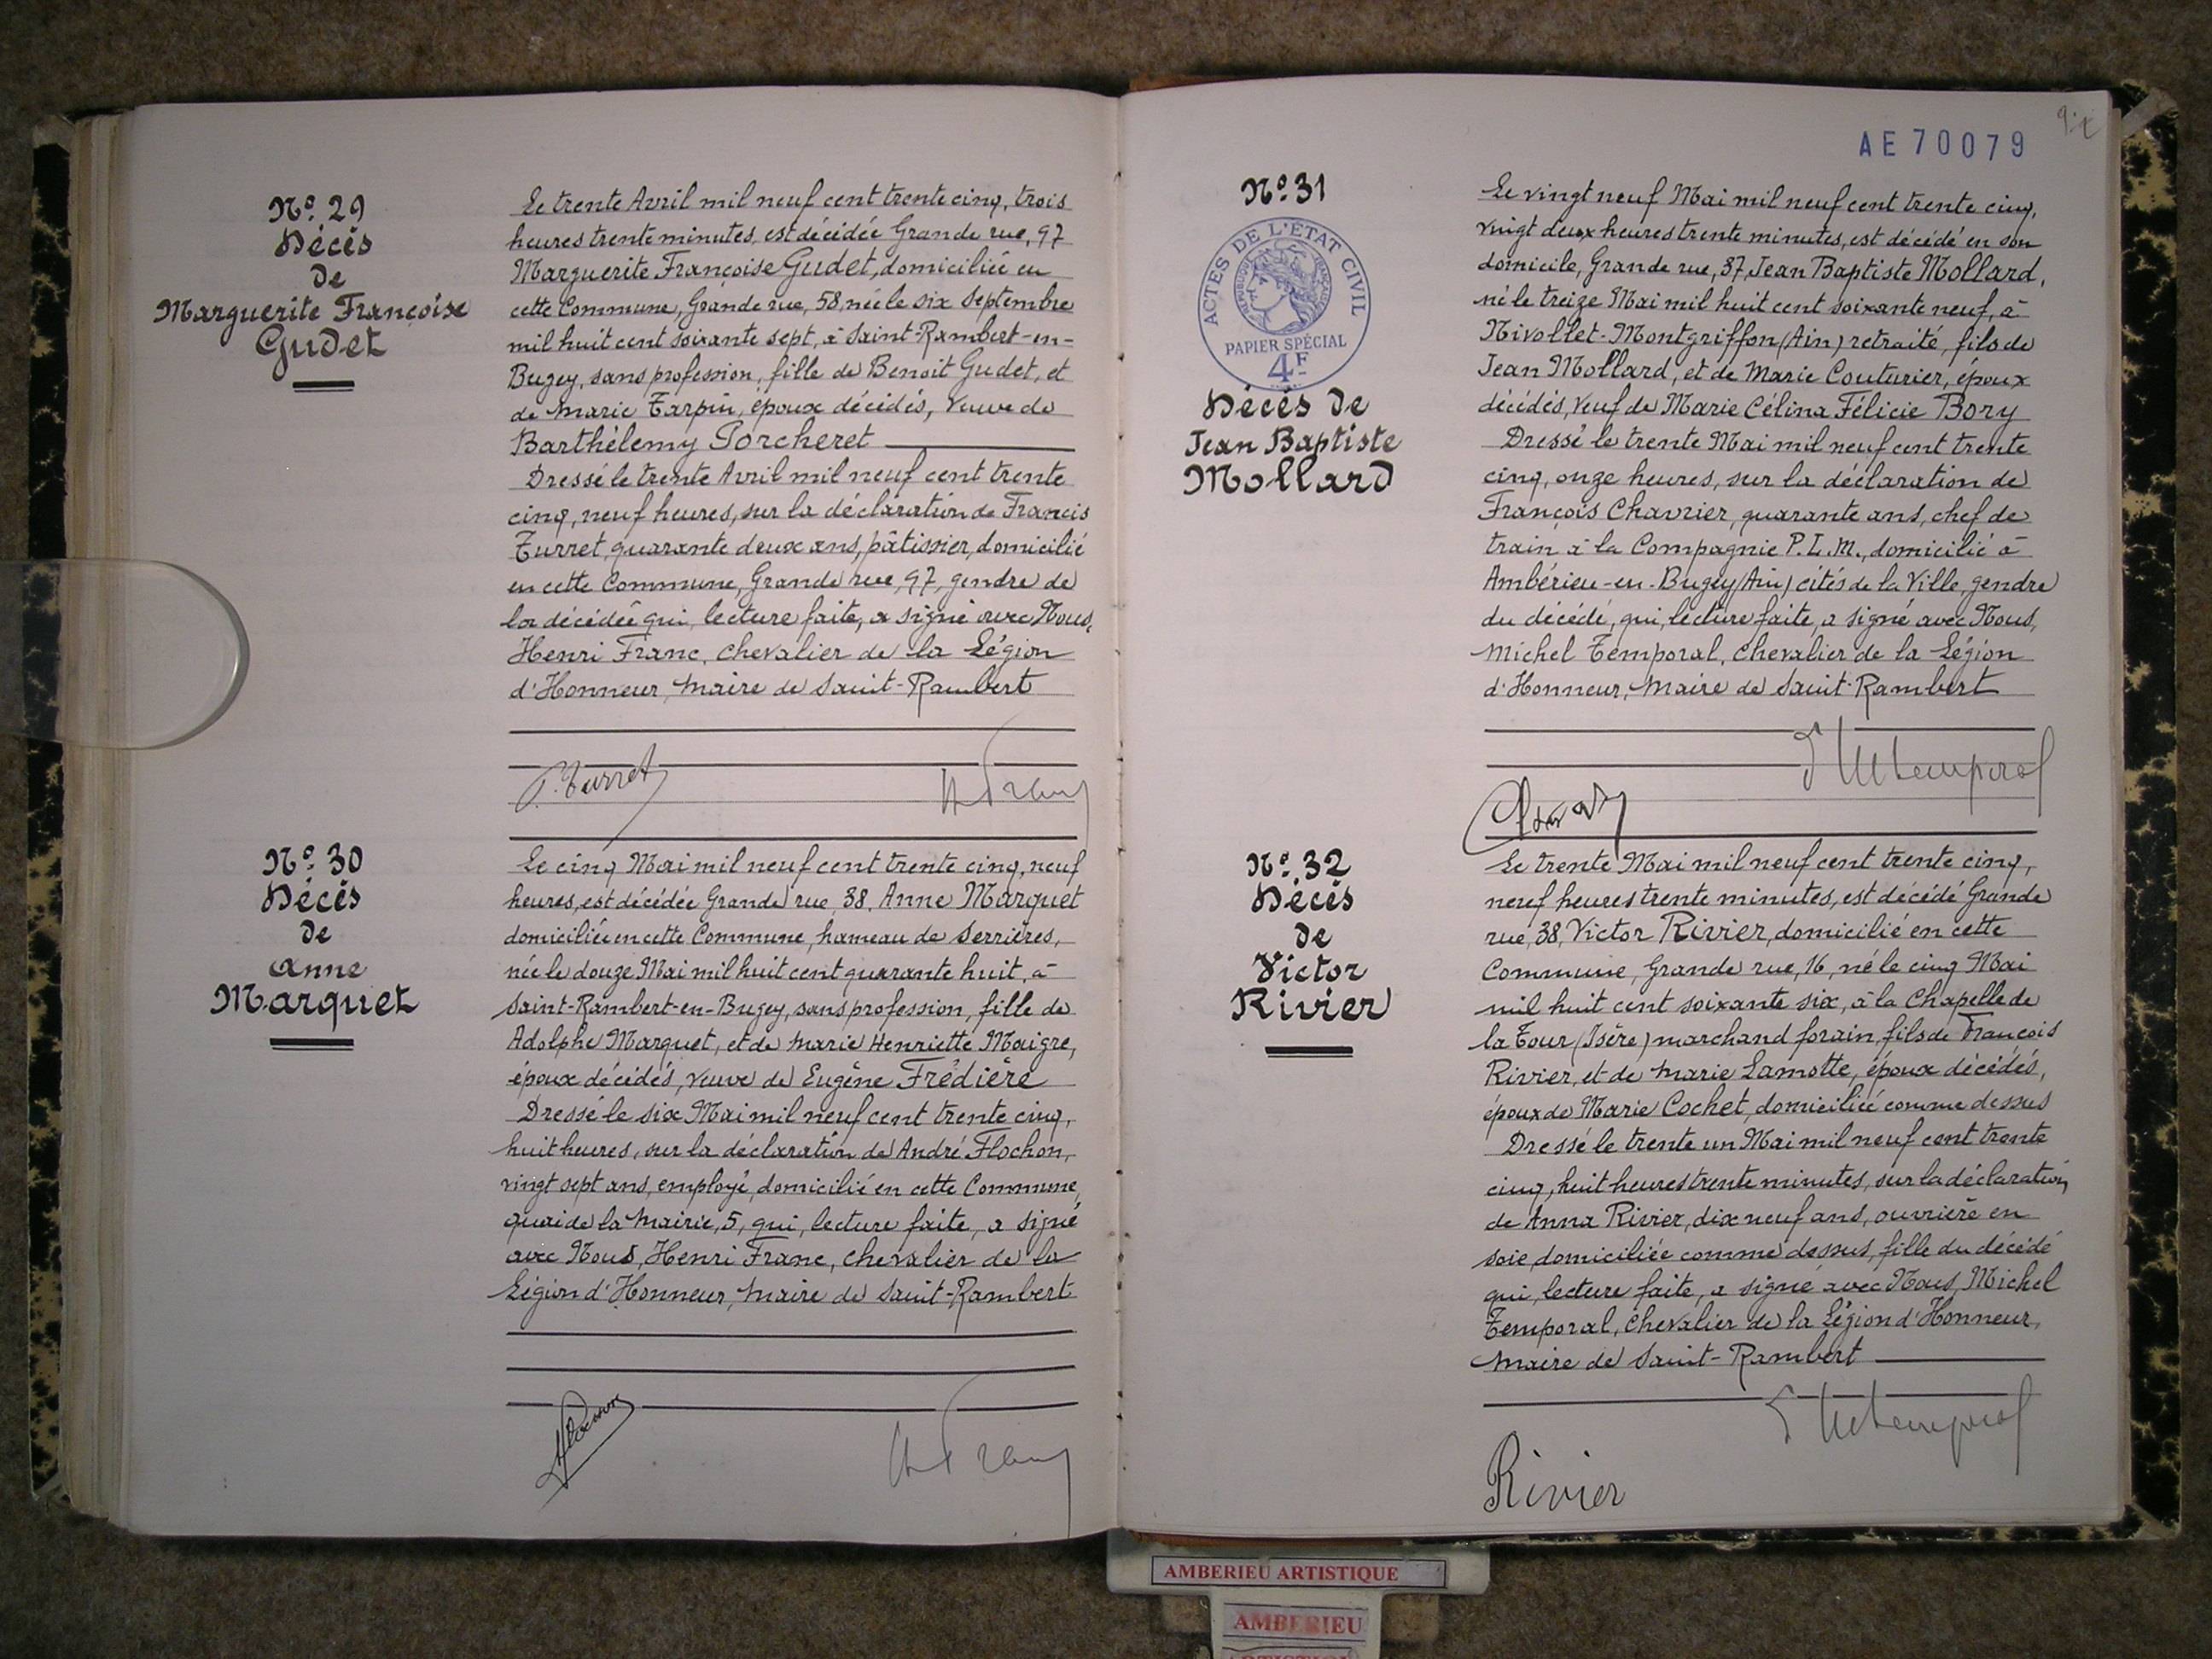 Nº 29
Décès
de
Marguerite Françoise
Gudet
Le trente Avril mil neuf cent trente cinq, trois
heures trente minutes, est décédée Grande rue, 97
Marguerite Françoise Gudet, domiciliée en
cette Commune, Grande rue, 58, née le six Septembre
mil huit cent soixante sept, à Saint-Rambert-en-
Bugey, sans profession, fille de Benoit Gudet, et
de Marie Tarpin, époux décédés, Veuve de
Barthélemy Porcheret
Dressé le trente Avril mil neuf cent trente
cinq, neuf heures, sur la déclaration de Francis
Turret, quarante deux ans, pâtissier, domicilié
en cette Commune, Grande rue, 97, gendre de
la décédée qui, lecture faite, a signé avec Nous,
Henri Franc, Chevalier de la Légion
d'Honneur, Maire de Saint-Rambert
F. Turret
H Franc
Nº 30
Décès
de
Anne
Marquet
Le cinq Mai mil neuf cent trente cinq, neuf
heures, est décédée Grande rue, 38, Anne Marquet
domiciliée en cette Commune, hameau de Serrières,
née le douze Mai mil huit cent quarante huit, à
Saint-Rambert-en-Bugey, sans profession, fille de
Adolphe Marquet, et de Marie Henriette Maigre,
époux décédés, veuve de Eugène Frédière
Dressé le six Mai mil neuf cent trente cinq,
huit heures, sur la déclaration de André Flochon,
vingt sept ans, employé, domicilié en cette Commune,
quai de la Mairie, 5, qui, lecture faite, a signé
avec Nous, Henri Franc, Chevalier de la
Légion d'Honneur, Maire de Saint-Rambert
Flochon
H Franc
AE 70079
Nº 31
ACTES DE L'ÉTAT CIVIL
RÉPUBLIQUE FRANÇAISE
PAPIER SPÉCIAL
4F
Décès de
Jean Baptiste
Mollard
Le vingt neuf Mai mil neuf cent trente cinq,
vingt deux heures trente minutes, est décédé en son
domicile, Grande rue, 37, Jean Baptiste Mollard,
né le treize Mai mil huit cent soixante neuf, à
Nivollet-Montgriffon (Ain) retraité, fils de
Jean Mollard, et de Marie Couturier, époux
décédés, Veuf de Marie Célina Félicie Bory
Dressé le trente Mai mil neuf cent trente
cinq, onze heures, sur la déclaration de
François Chavrier, quarante ans, chef de
train à la Compagnie P.L.M., domicilié à
Ambérieu-en-Bugey (Ain) cités de la Ville, gendre
du décédé, qui, lecture faite, a signé avec Nous,
Michel Temporal, Chevalier de la Légion
d'Honneur, Maire de Saint-Rambert
M Temporal
Nº 32
Décès
de
Victor
Rivier
Le trente Mai mil neuf cent trente cinq,
neuf heures trente minutes, est décédé Grande
rue, 38, Victor Rivier, domicilié en cette
Commune, Grande rue, 16, né le cinq Mai
mil huit cent soixante six, à la Chapelle de
la Tour (Isère) marchand forain, fils de François
Rivier, et de Marie Lamotte, époux décédés,
époux de Marie Cochet, domiciliée comme dessus
Dressé le trente un Mai mil neuf cent trente
cinq, huit heures trente minutes, sur la déclaration
de Anna Rivier, dix neuf ans, ouvrière en
soie, domiciliée comme dessus, fille du décédé
qui, lecture faite, a signé avec Nous, Michel
Temporal, Chevalier de la Légion d'Honneur,
Maire de Saint-Rambert
M Temporal
Rivier
AMBERIEU ARTISTIQUE
AMBERIEU
ARTISTIQUE